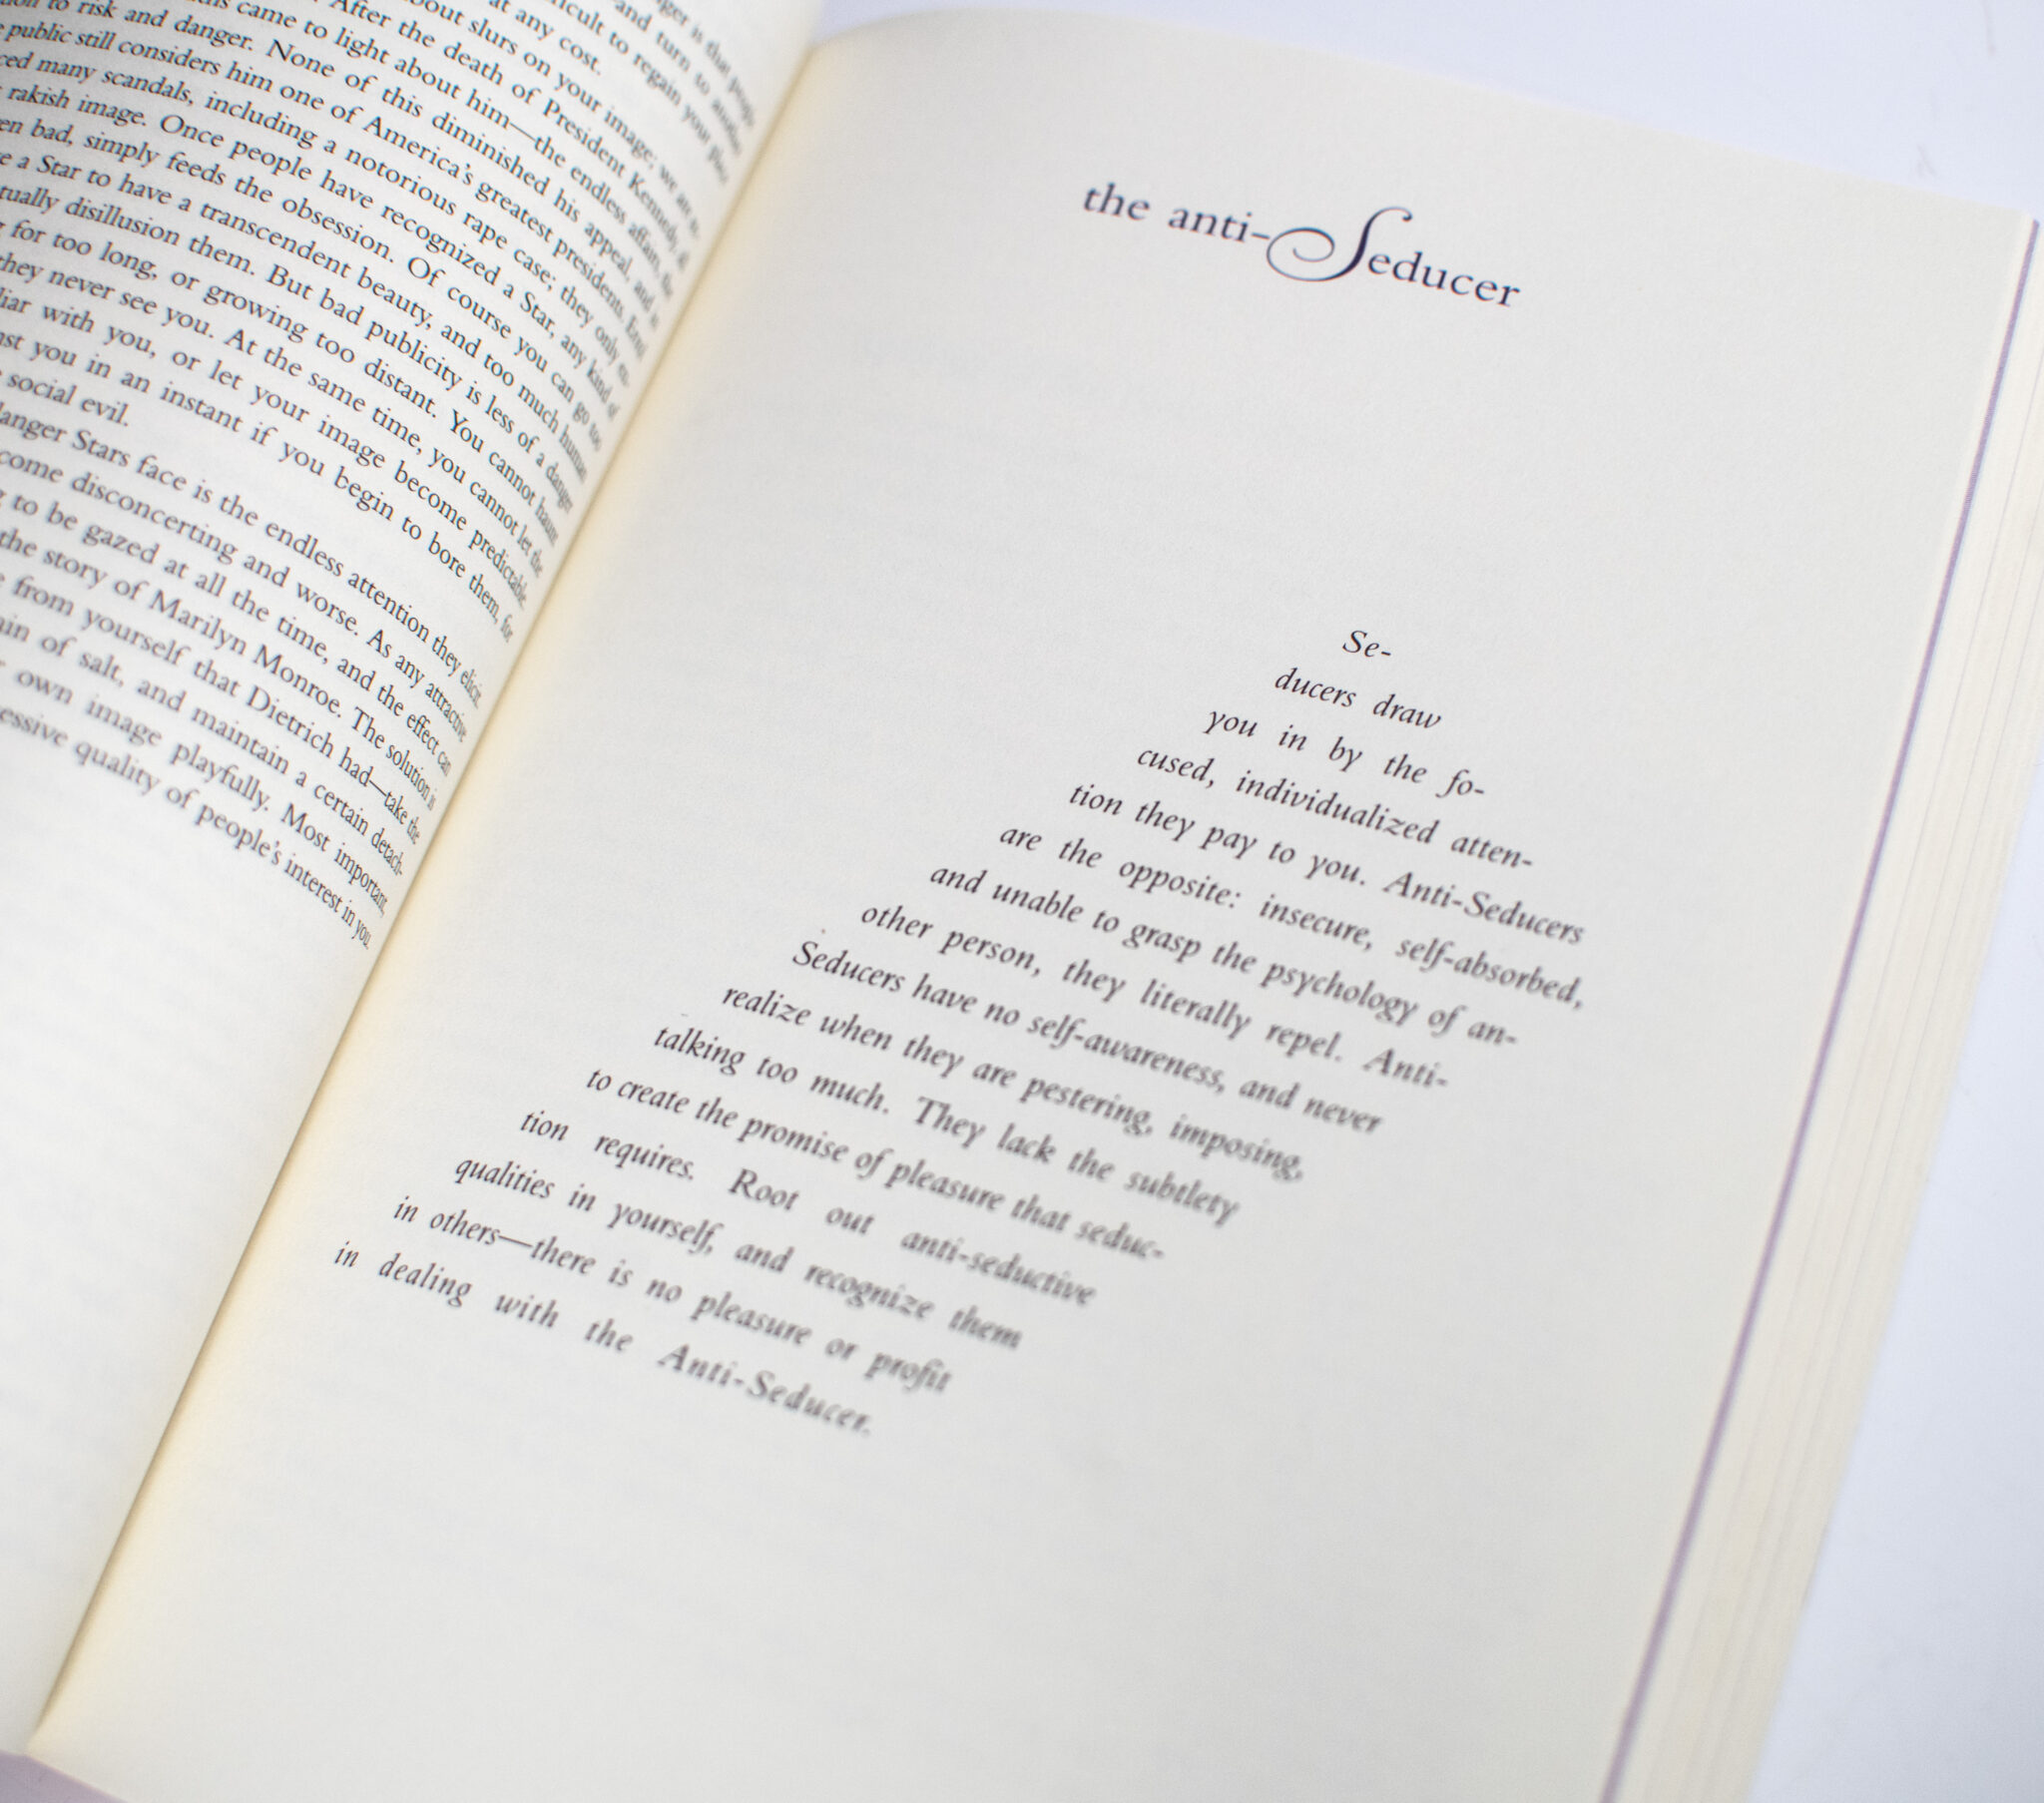 ger is that people
and turn to another
icult to regain your place
at any cost.
bout slurs on your image; we are
After the death of President Kennedy,
came to light about him—the endless affairs, the
to risk and danger. None of this diminished his appeal, and
public still considers him one of America's greatest presidents. Errol
ced many scandals, including a notorious rape case; they only en-
rakish image. Once people have recognized a Star, any kind of
en bad, simply feeds the obsession. Of course you can go too
e a Star to have a transcendent beauty, and too much human
tually disillusion them. But bad publicity is less of a danger
for too long, or growing too distant. You cannot haunt
they never see you. At the same time, you cannot let the
liar with you, or let your image become predictable.
nst you in an instant if you begin to bore them, for
social evil.
anger Stars face is the endless attention they elicit.
come disconcerting and worse. As any attractive
to be gazed at all the time, and the effect can
the story of Marilyn Monroe. The solution is
from yourself that Dietrich had—take the
ain of salt, and maintain a certain detach-
own image playfully. Most important,
essive quality of people's interest in you.
the anti-Seducer
Se-
ducers draw
you in by the fo-
cused, individualized atten-
tion they pay to you. Anti-Seducers
are the opposite: insecure, self-absorbed,
and unable to grasp the psychology of an-
other person, they literally repel. Anti-
Seducers have no self-awareness, and never
realize when they are pestering, imposing,
talking too much. They lack the subtlety
to create the promise of pleasure that seduc-
tion requires. Root out anti-seductive
qualities in yourself, and recognize them
in others—there is no pleasure or profit
in dealing with the Anti-Seducer.